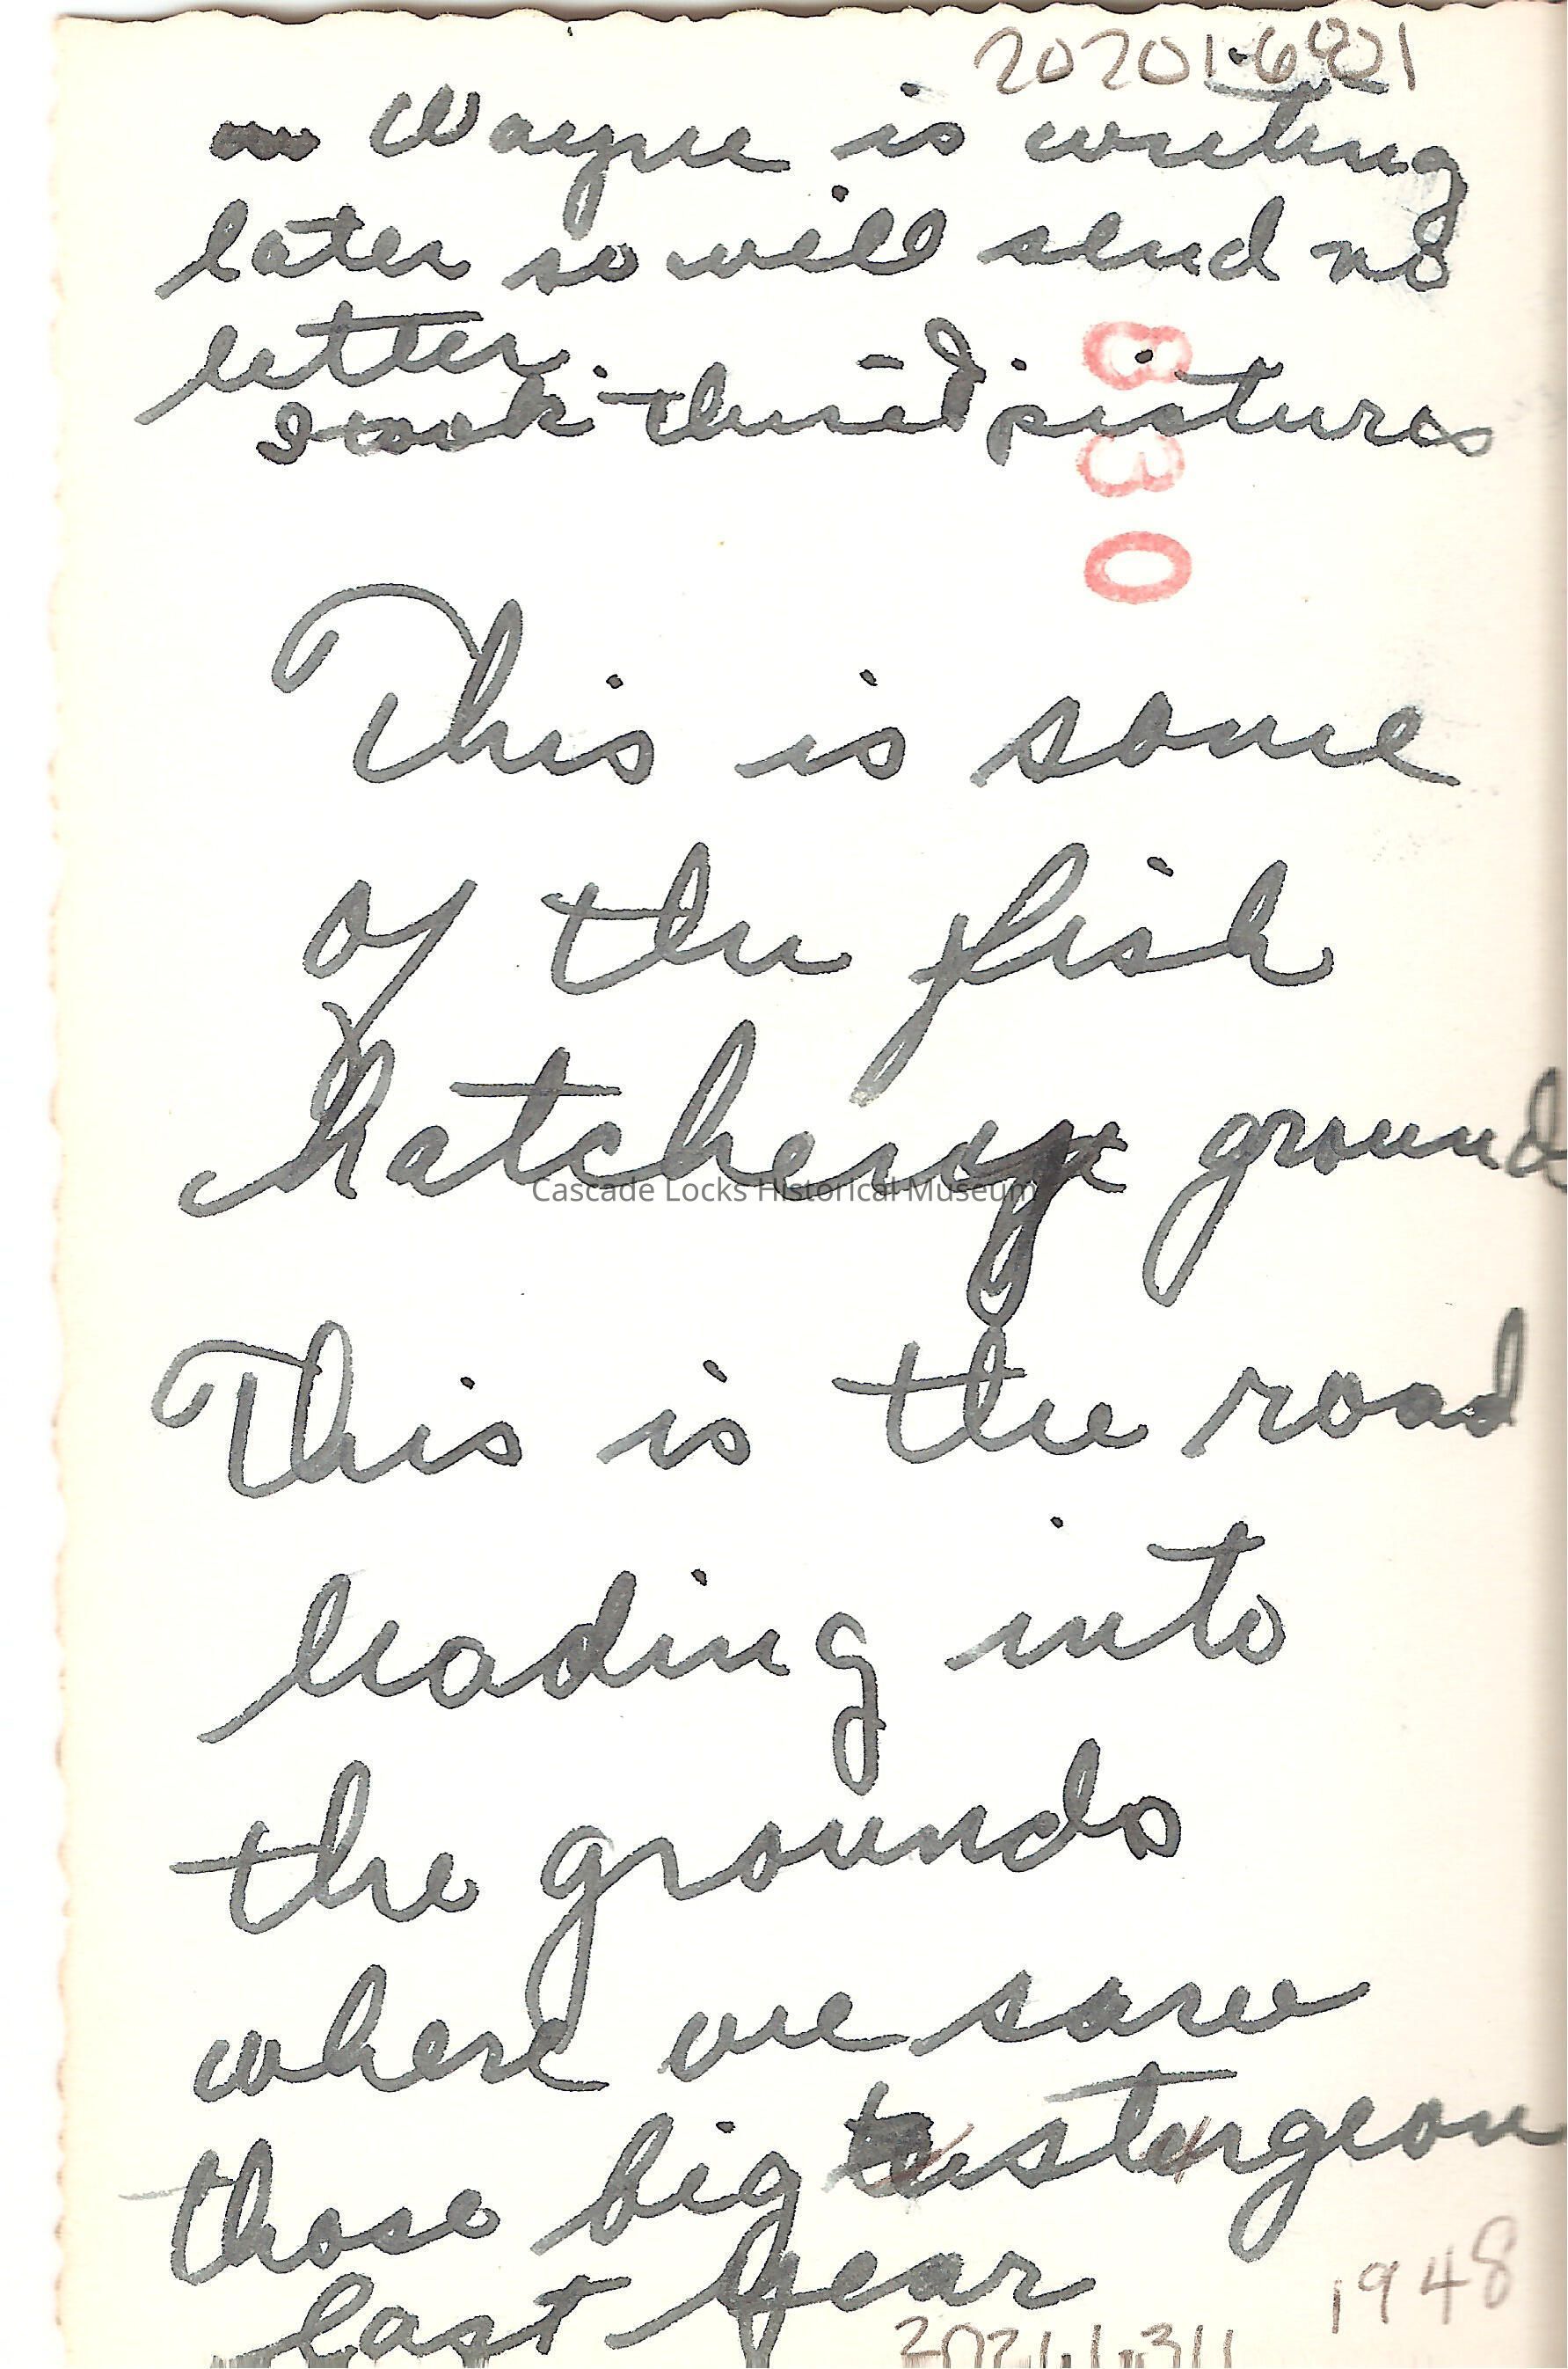 Wayne is writing
later so will send no
letter.
I took these pictures
830
This is some
of the fish
hatchery grounds
Cascade Locks Historical Museum
This is the road
leading into
the grounds
where we saw
those big sturgeon
last year
1948